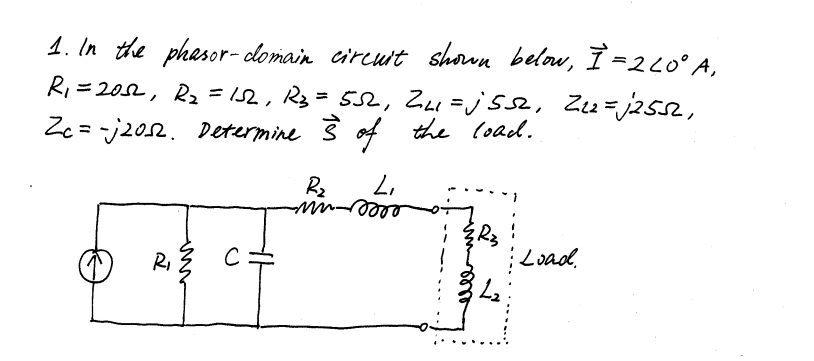 1. In the phasor-domain circuit shown below, I⃗ = 2∠0° A,
R₁ = 20Ω, R₂ = 1Ω, R₃ = 5Ω, Z_L1 = j5Ω, Z_L2 = j25Ω,
Z_C = -j20Ω. Determine S⃗ of the load.
R₂ L₁
R₁ C R₃ Load.
L₂